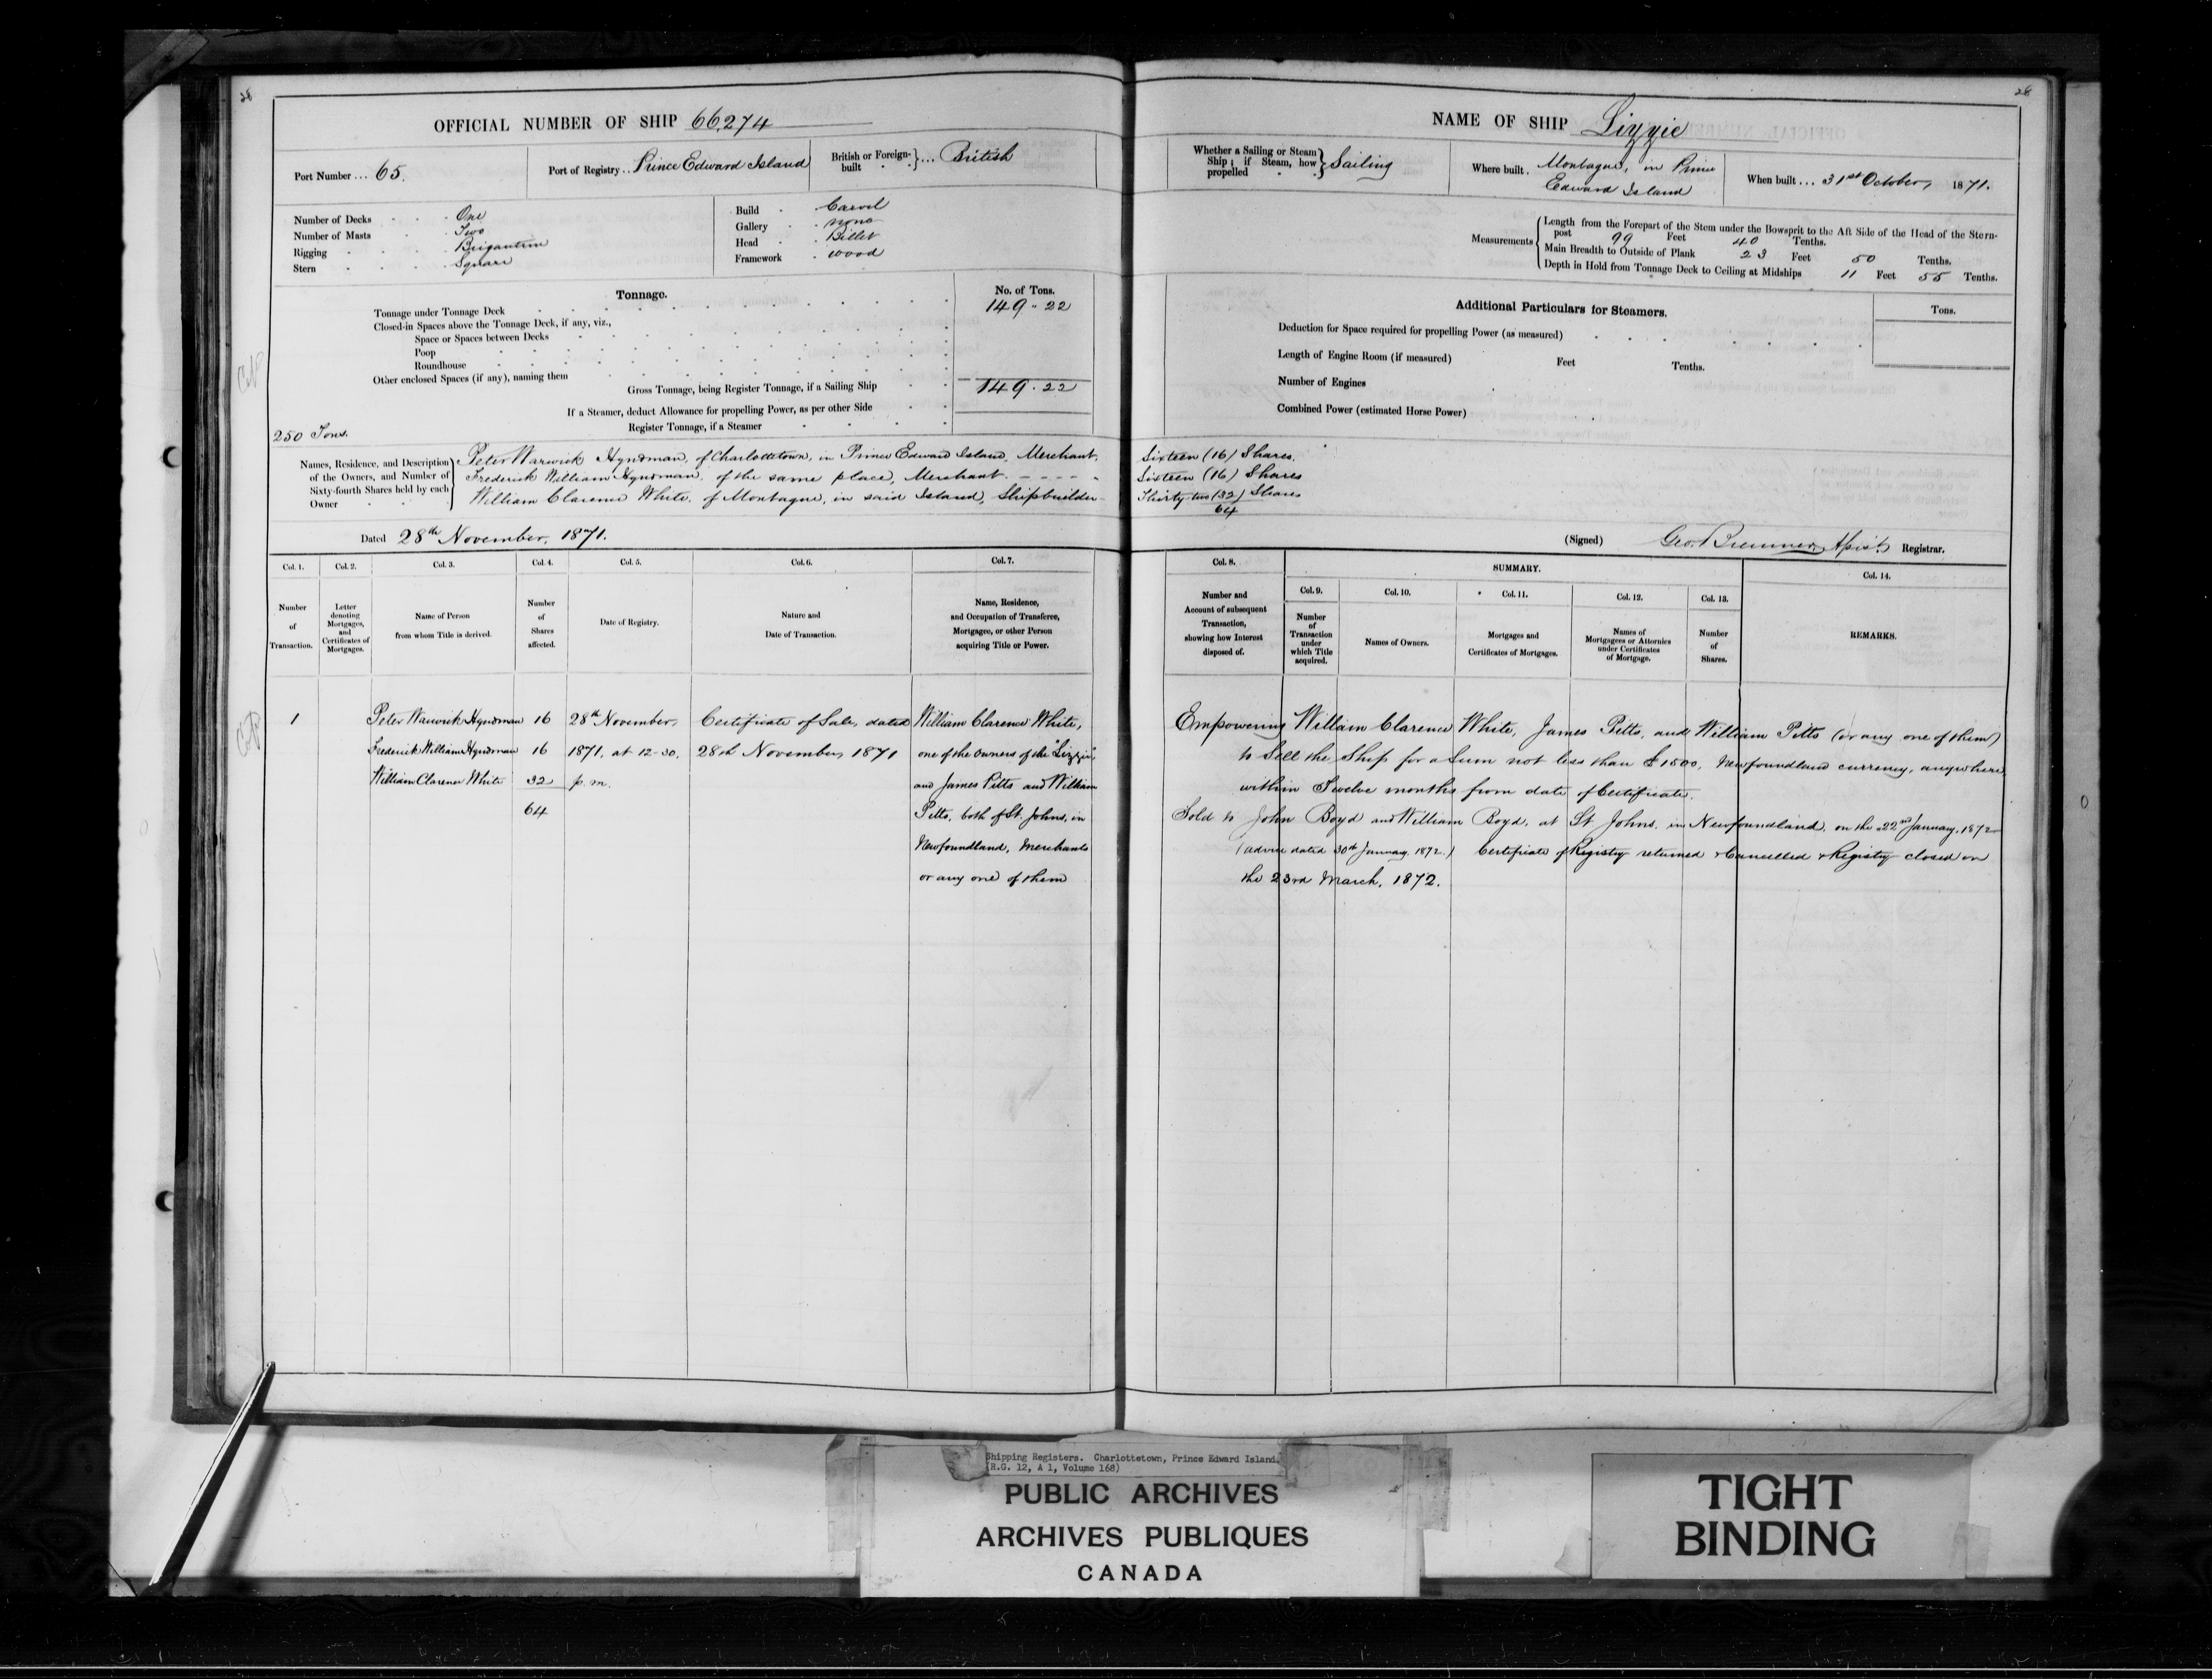 28
28
OFFICIAL NUMBER OF SHIP 66,274
Port Number ... 65.
Port of Registry .. Prince Edward Island
British or Foreign-built }... British
Number of Decks One
Number of Masts Two
Rigging Brigantine
Stern Square
Build Carvel
Gallery none
Head Billet
Framework wood
Tonnage.
No. of Tons.
Tonnage under Tonnage Deck 149 " 22
Closed-in Spaces above the Tonnage Deck, if any, viz.,
Space or Spaces between Decks
Poop
Roundhouse
Other enclosed Spaces (if any), naming them
Gross Tonnage, being Register Tonnage, if a Sailing Ship 149 . 22
If a Steamer, deduct Allowance for propelling Power, as per other Side
Register Tonnage, if a Steamer
250 Tons.
Names, Residence, and Description of the Owners, and Number of Sixty-fourth Shares held by each Owner
Peter Warwick Hyndman, of Charlottetown, in Prince Edward Island, Merchant,
Frederick William Hyndman, of the same place, Merchant - - - - "
William Clarence White, of Montague, in said Island, Shipbuilder
Dated 28th November, 1871.
NAME OF SHIP Lizzie
Whether a Sailing or Steam Ship; if Steam, how propelled } Sailing
Where built . Montague, in Prince
Edward Island
When built ... 31st October, 1871.
Measurements
Length from the Forepart of the Stem under the Bowsprit to the Aft Side of the Head of the Stern-
post 99 Feet 40 Tenths.
Main Breadth to Outside of Plank 23 Feet 50 Tenths.
Depth in Hold from Tonnage Deck to Ceiling at Midships 11 Feet 55 Tenths.
Additional Particulars for Steamers.
Tons.
Deduction for Space required for propelling Power (as measured)
Length of Engine Room (if measured) Feet Tenths.
Number of Engines
Combined Power (estimated Horse Power)
Sixteen (16) Shares.
Sixteen (16) Shares
Thirty-two (32) Shares
64
(Signed) Geo. Bremner, Registrar.
Col. 1.
Number of Transaction.
Col. 2.
Letter denoting Mortgages, and Certificates of Mortgages.
Col. 3.
Name of Person from whom Title is derived.
Col. 4.
Number of Shares affected.
Col. 5.
Date of Registry.
Col. 6.
Nature and Date of Transaction.
Col. 7.
Name, Residence, and Occupation of Transferee, Mortgagee, or other Person acquiring Title or Power.
Col. 8.
Number and Account of subsequent Transaction, showing how Interest disposed of.
SUMMARY.
Col. 9.
Number of Transaction under which Title acquired.
Col. 10.
Names of Owners.
Col. 11.
Mortgages and Certificates of Mortgages.
Col. 12.
Names of Mortgagees or Attornies under Certificates of Mortgage.
Col. 13.
Number of Shares.
Col. 14.
REMARKS.
1 Peter Warwick Hyndman 16 28th November, Certificate of Sale, dated William Clarence White,
Frederick William Hyndman 16 1871, at 12-30, 28th November, 1871 one of the owners of the "Lizzie",
William Clarence White 32 p.m. and James Pitts and William
64 Pitts, both of St. Johns, in
Newfoundland, Merchants
or any one of them
Empowering William Clarence White, James Pitts, and William Pitts (or any one of them)
to sell the Ship for a Sum not less than £1500, Newfoundland currency, anywhere
within Twelve months from date of Certificate.
Sold to John Boyd and William Boyd, at St Johns, in Newfoundland, on the 22nd January, 1872
(advice dated 30th January, 1872.) Certificate of Registry returned & Cancelled & Registry closed on
the 23rd March, 1872.
Shipping Registers. Charlottetown, Prince Edward Island.
(R.G. 12, A 1, Volume 168)
PUBLIC ARCHIVES
ARCHIVES PUBLIQUES
CANADA
TIGHT
BINDING